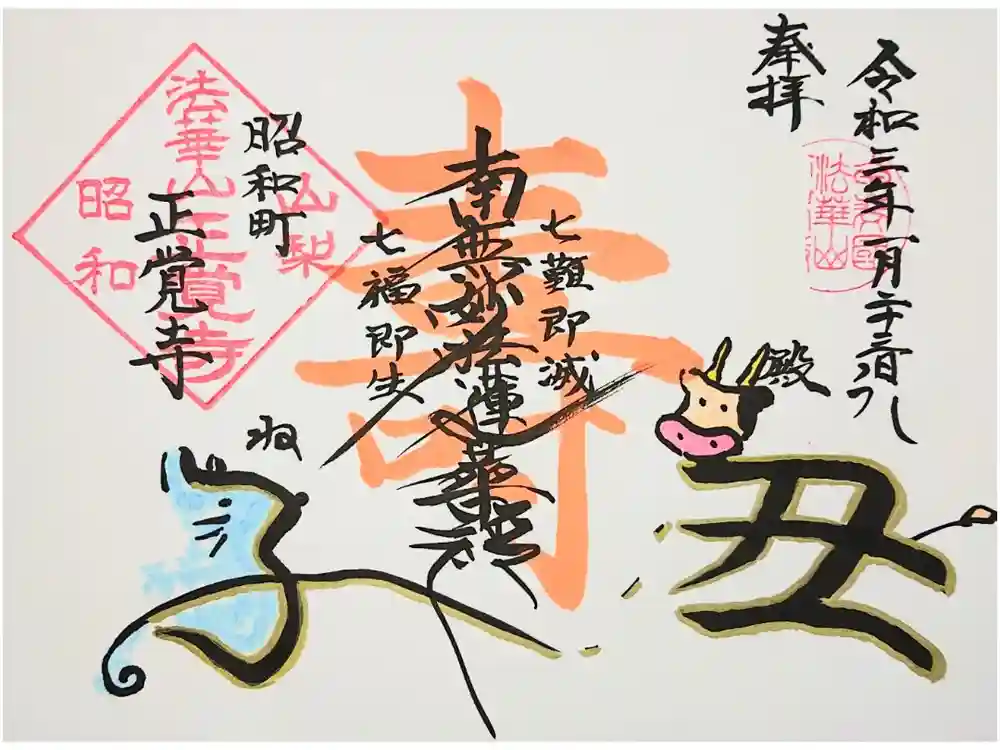 奉拝
令和三年一月二十二日
殿
法華山
七難即滅
南無妙法蓮華経
七福即生
寿
昭和町
正覚寺
山梨
法華山正覚寺
昭和
ね
子
丑